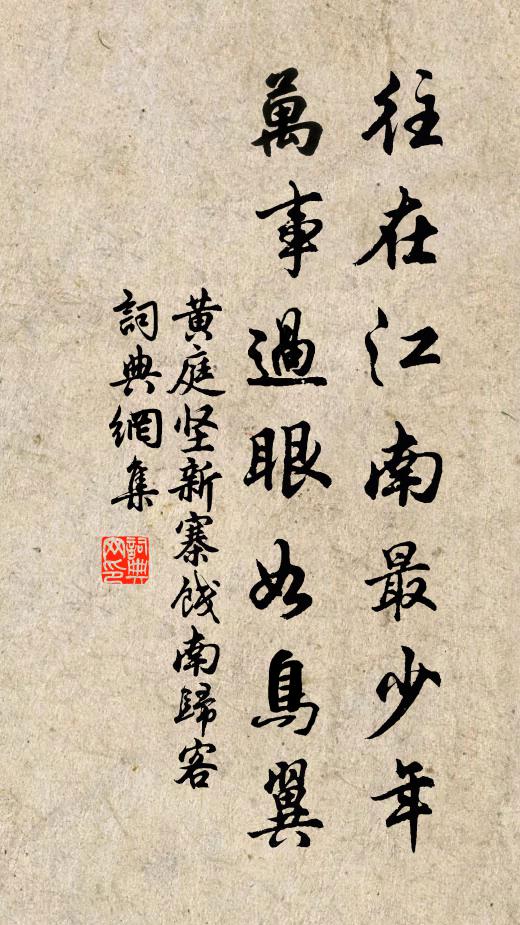 往在江南最少年
萬事過眼如鳥翼
黄庭坚新寨饯南歸客
詞典網集
詞典网印